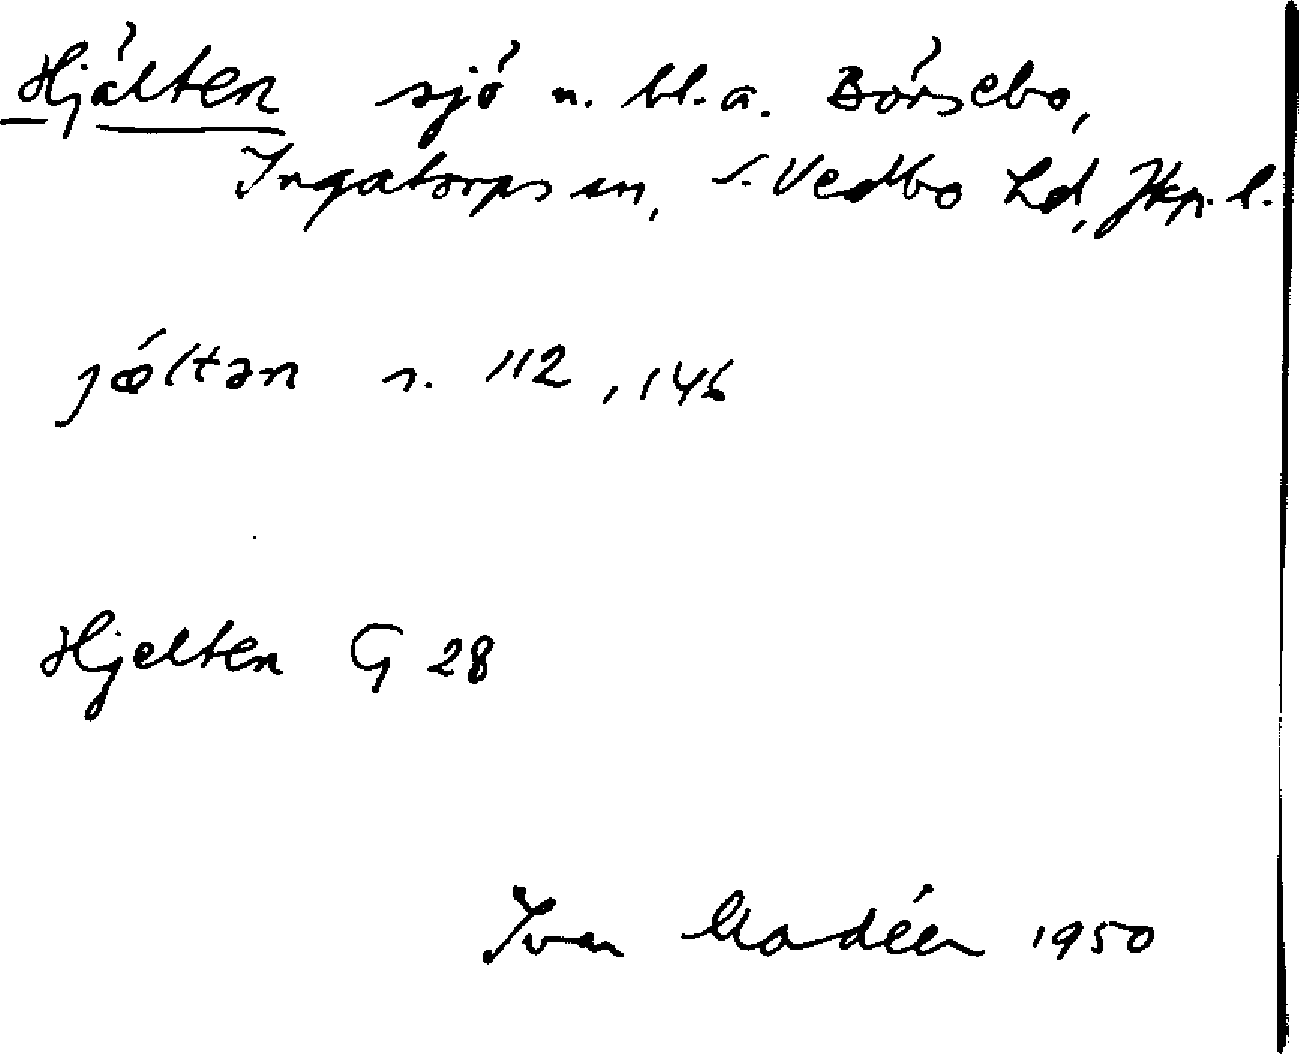 Hjälten sjö n. bl.a. Börsebo,
Ingatorps sn, S. Vedbo hd, Jkp. l.
jǽltən s. 112, 146
Hjelten G 28
Ivan Modéer 1950